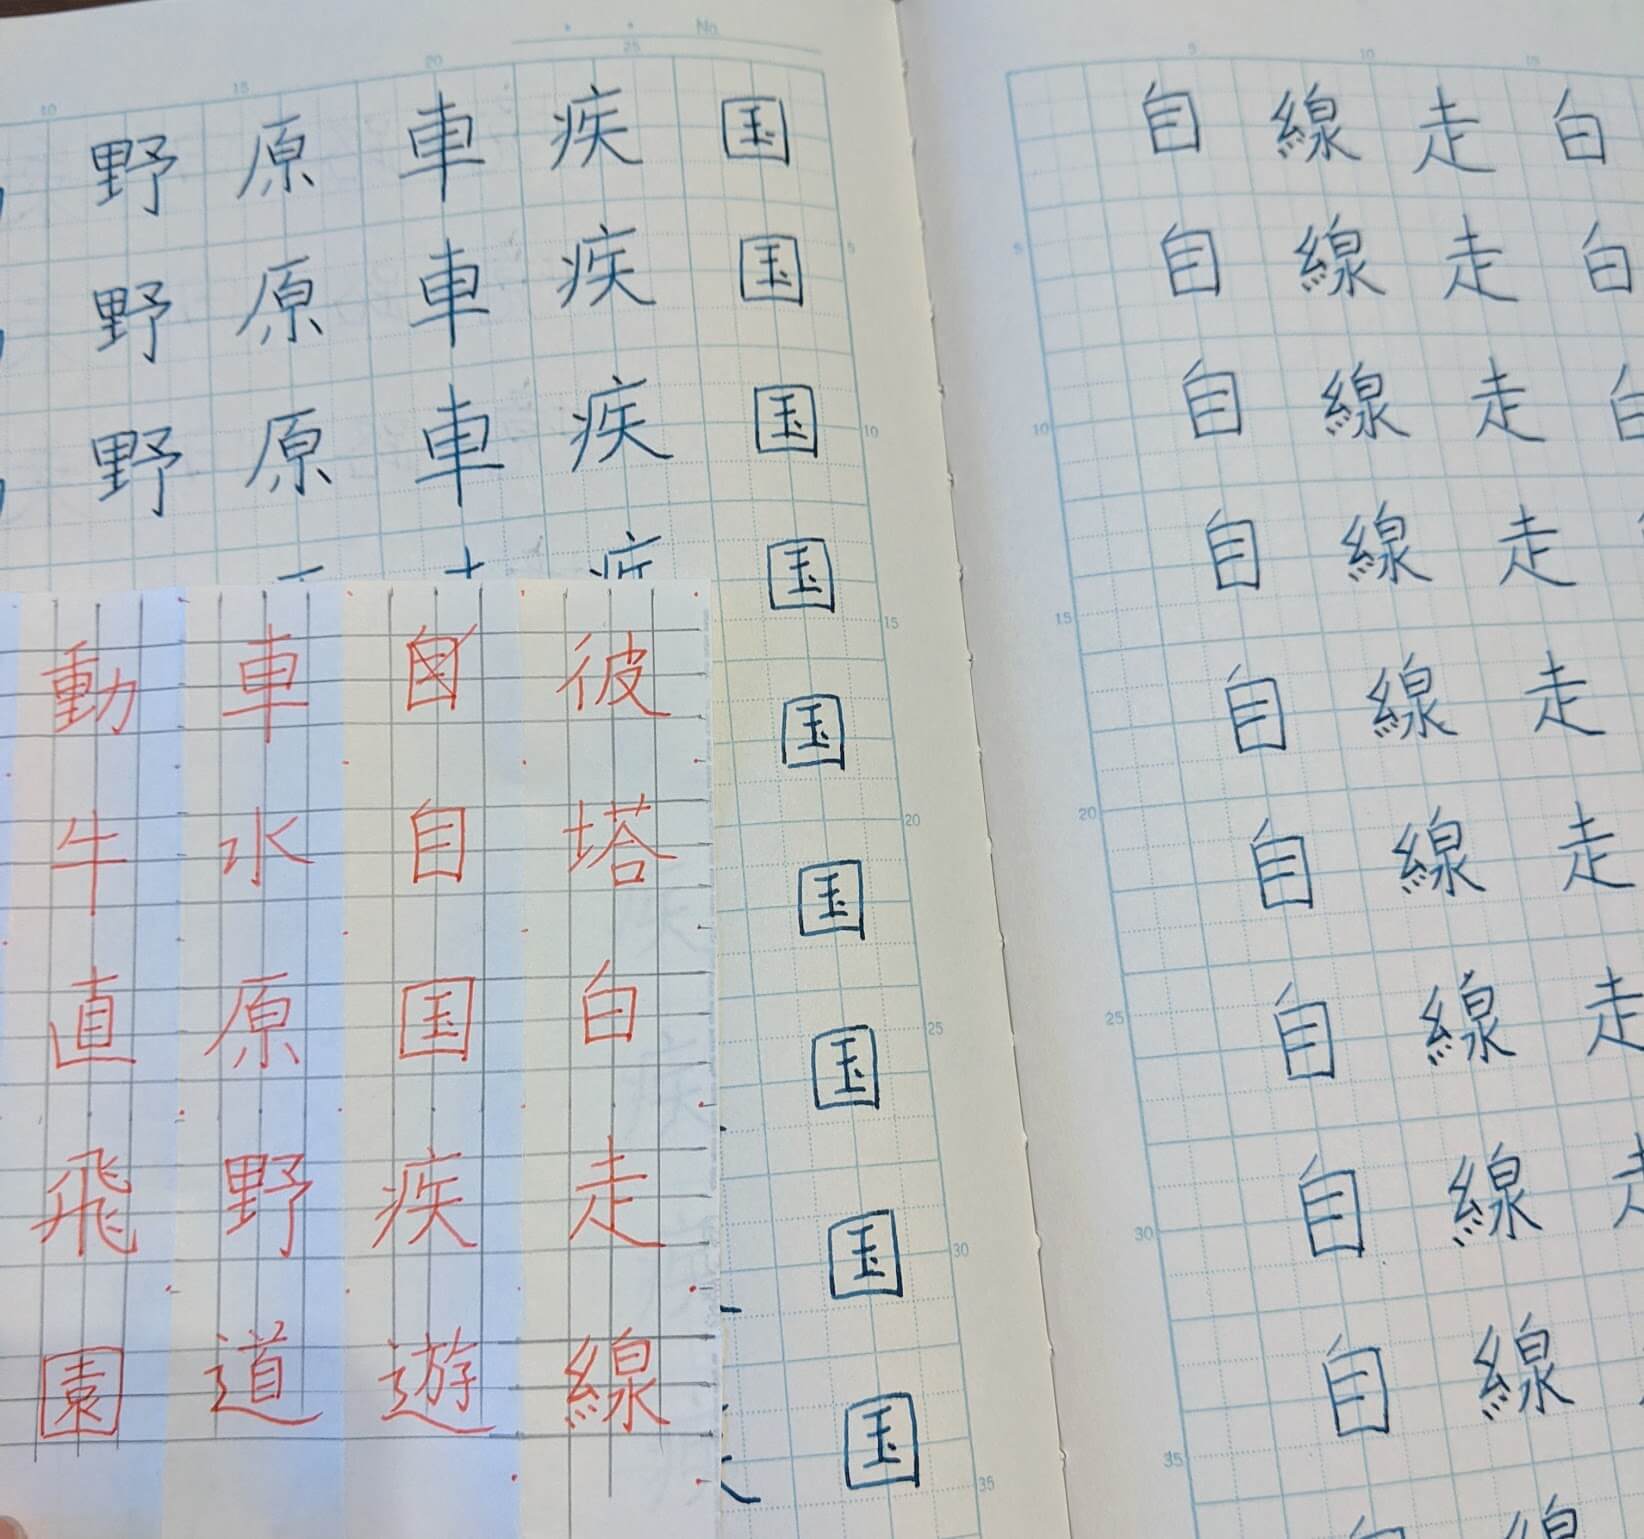 No.
10
15
20
25
5
10
15
20
25
30
35
5
10
15
5
10
15
20
25
30
35
白白
走走走走走走走
線線線線線線線線線
自自自自自自自自自
国国国国国国国国国
疾疾疾
車車車
原原原
野野野
彼塔白走線
自自国疾遊
車水原野道
動牛直飛園